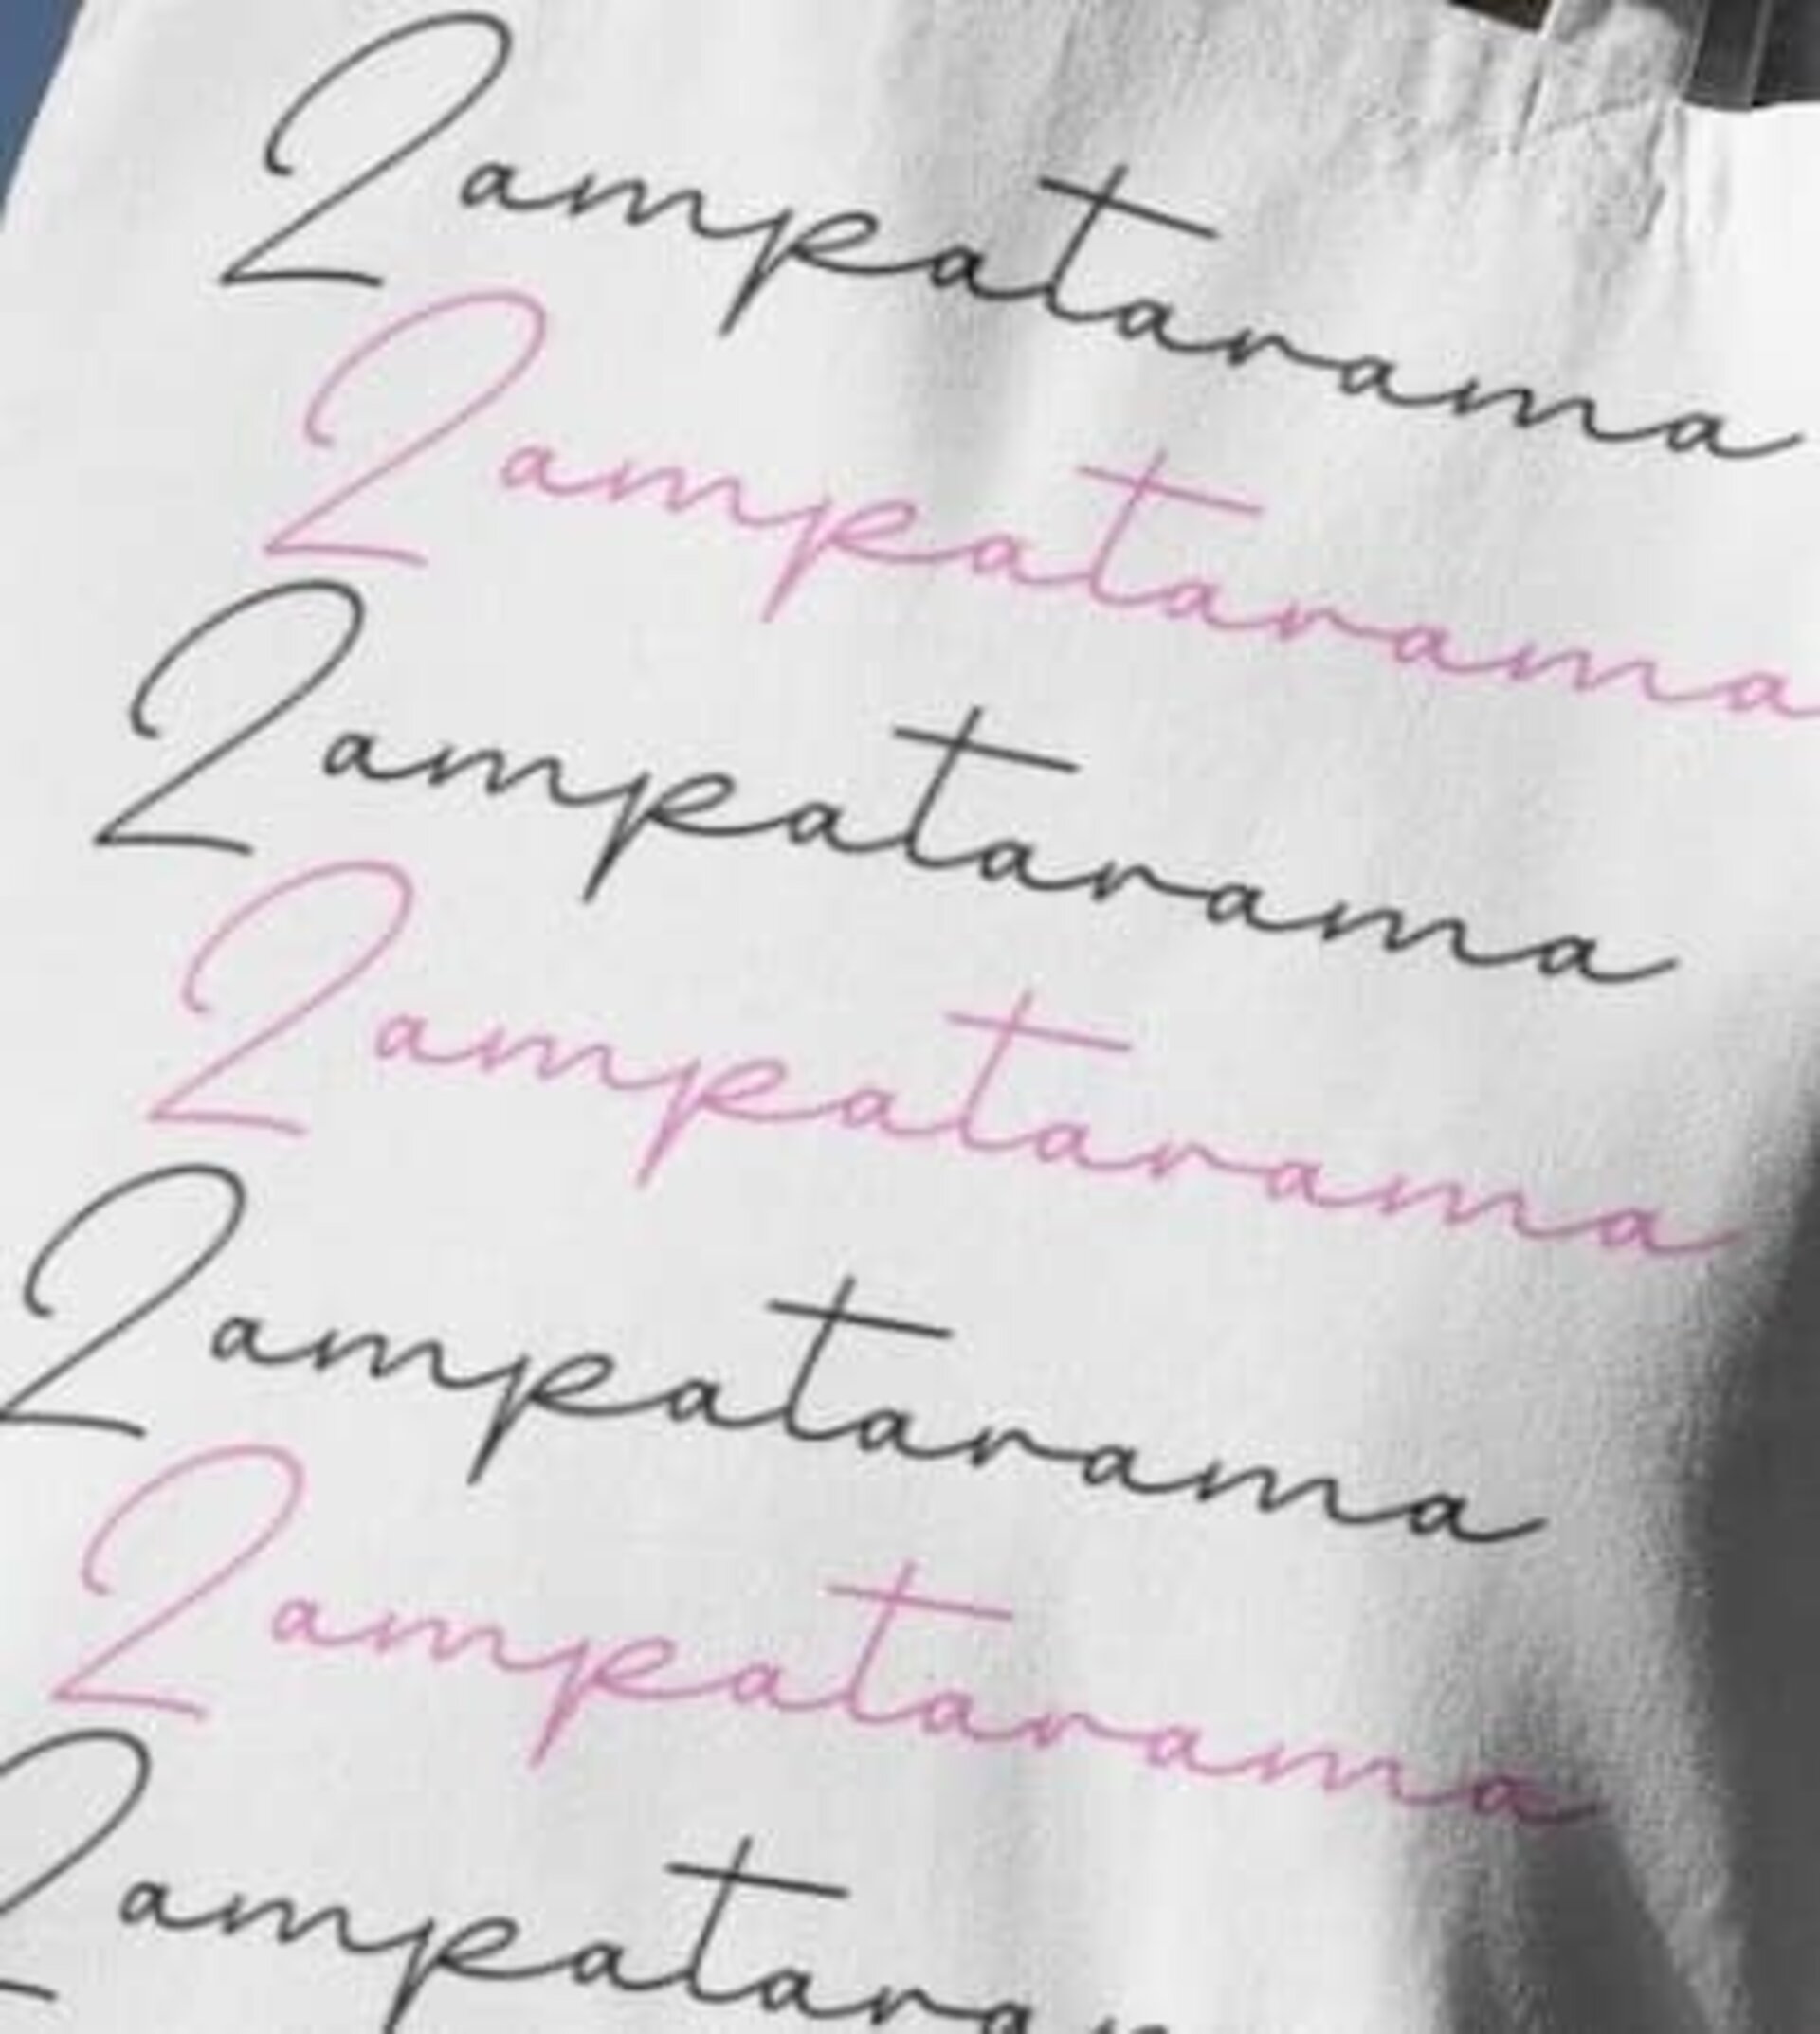 Zampatarama
Zampatarama
Zampatarama
Zampatarama
Zampatarama
Zampatarama
Zampatara